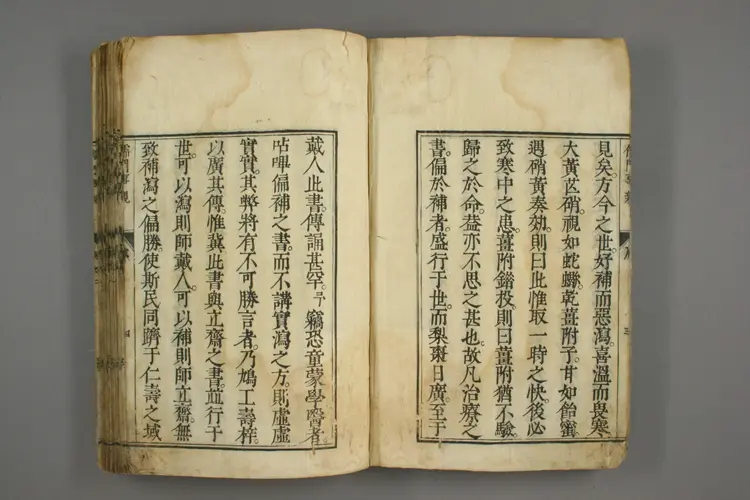 見矣方今之世好補而惡瀉喜溫而畏寒
大黃芒硝視如蛇蠍乾薑附子甘如飴蜜
遇硝黃奏効則曰此惟取一時之快後必
致寒中之患薑附錯投則曰薑附猶不驗
歸之於命葢亦不思之甚也故凡治療之
書偏於補者盛行于世而梨棗日廣至于
戴人此書傳誦甚罕予竊恐童蒙學醫者
呫嗶偏補之書而不講實瀉之方則虛虛
實實其弊將有不可勝言者乃鳩工壽梓
以廣其傳惟冀此書與立齋之書並行于
世可以瀉則師戴人可以補則師立齋無
致補瀉之偏勝使斯民同躋于仁壽之域